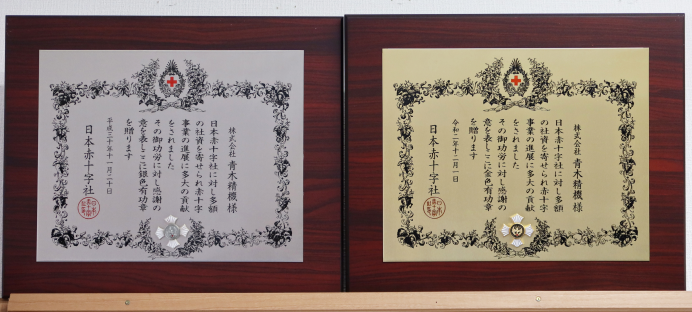 株式会社 青木精機様
日本赤十字社に対し多額
の社資を寄せられ赤十字
事業の進展に多大の貢献
をされました
その御功労に対し感謝の
意を表しここに銀色有功章
を贈ります
平成三十年十一月二十日
日本赤十字社
株式会社 青木精機様
日本赤十字社に対し多額
の社資を寄せられ赤十字
事業の進展に多大の貢献
をされました
その御功労に対し感謝の
意を表しここに金色有功章
を贈ります
令和二年十二月一日
日本赤十字社